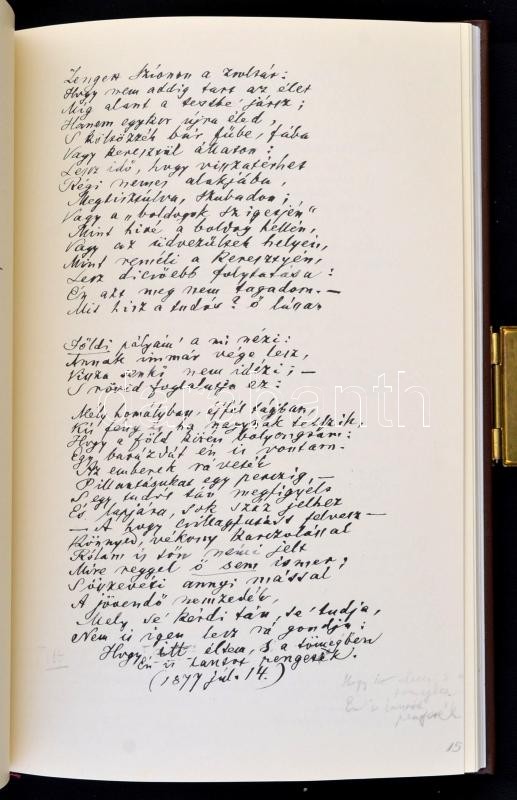 Zengett Szionon a zsoltár:
Hogy nem addig tart az élet
Míg alant a testbe' jársz;
Hanem egykor újra éled,
S költözzék bár fűbe, fába
Vagy keresztül állaton:
Lesz idő, hogy visszatérhet
Régi nemes alakjába,
Megtisztulva, szabadon;
Vagy a „boldogok szigetjén"
Mint hivé a boldog hellén,
Vagy az üdvezültek helyén,
Mint reméli a keresztyén,
Lesz dicsőebb folytatása:
Én azt meg nem tagadom. —
Mit hisz a tudós? ő lássa.
Földi pályám' a mi nézi:
Annak immár vége lesz,
Vissza senki nem idézi; —
S rövid foglalatja ez:
Mély homályban, éjfél tágban,
Kis fény is ha nagynak tetszik,
Hogy a föld körén bolyongtam:
Egy barázdát én is vontam.
Az emberek rá veték
Pillantásukat egy perczig, —
S egy tudós tán megfigyelt
És lapjára, sok száz jelhez
— A hogy csillagfutást jelvez —
Könnyed, vékony karczolással
Rólam is tőn némi jelt
Mire reggel ő sem ismer;
S összeveti annyi mással
A jövendő nemzedék,
Mely, se' kérdi tán, se' tudja,
Nem is igen lesz rá gondja:
Hogy itt éltem, s a tömegben
Én is lantot pengeték.
(1877 júl. 14.)
itt
Hogy itt éltem, s a
tömegben
Én is lantot
pengeték
15